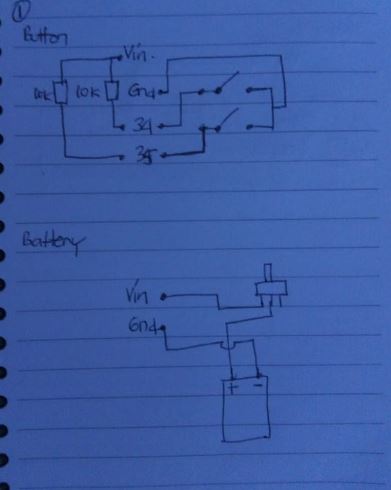 1
Button
Vin.
10k 10k Gnd
34
35
Battery
Vin
Gnd
+ -